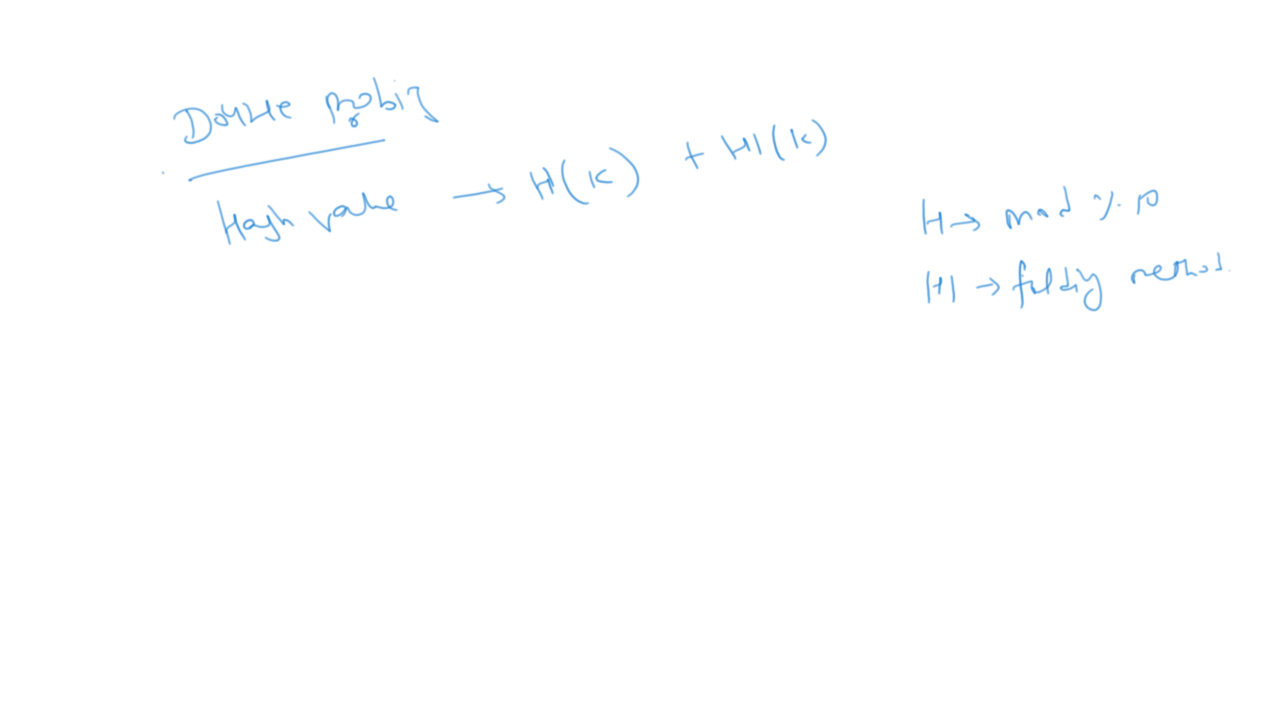 Double probing
Hash value → H(K) + H1(K)
H → mod % 10
H1 → folding method.